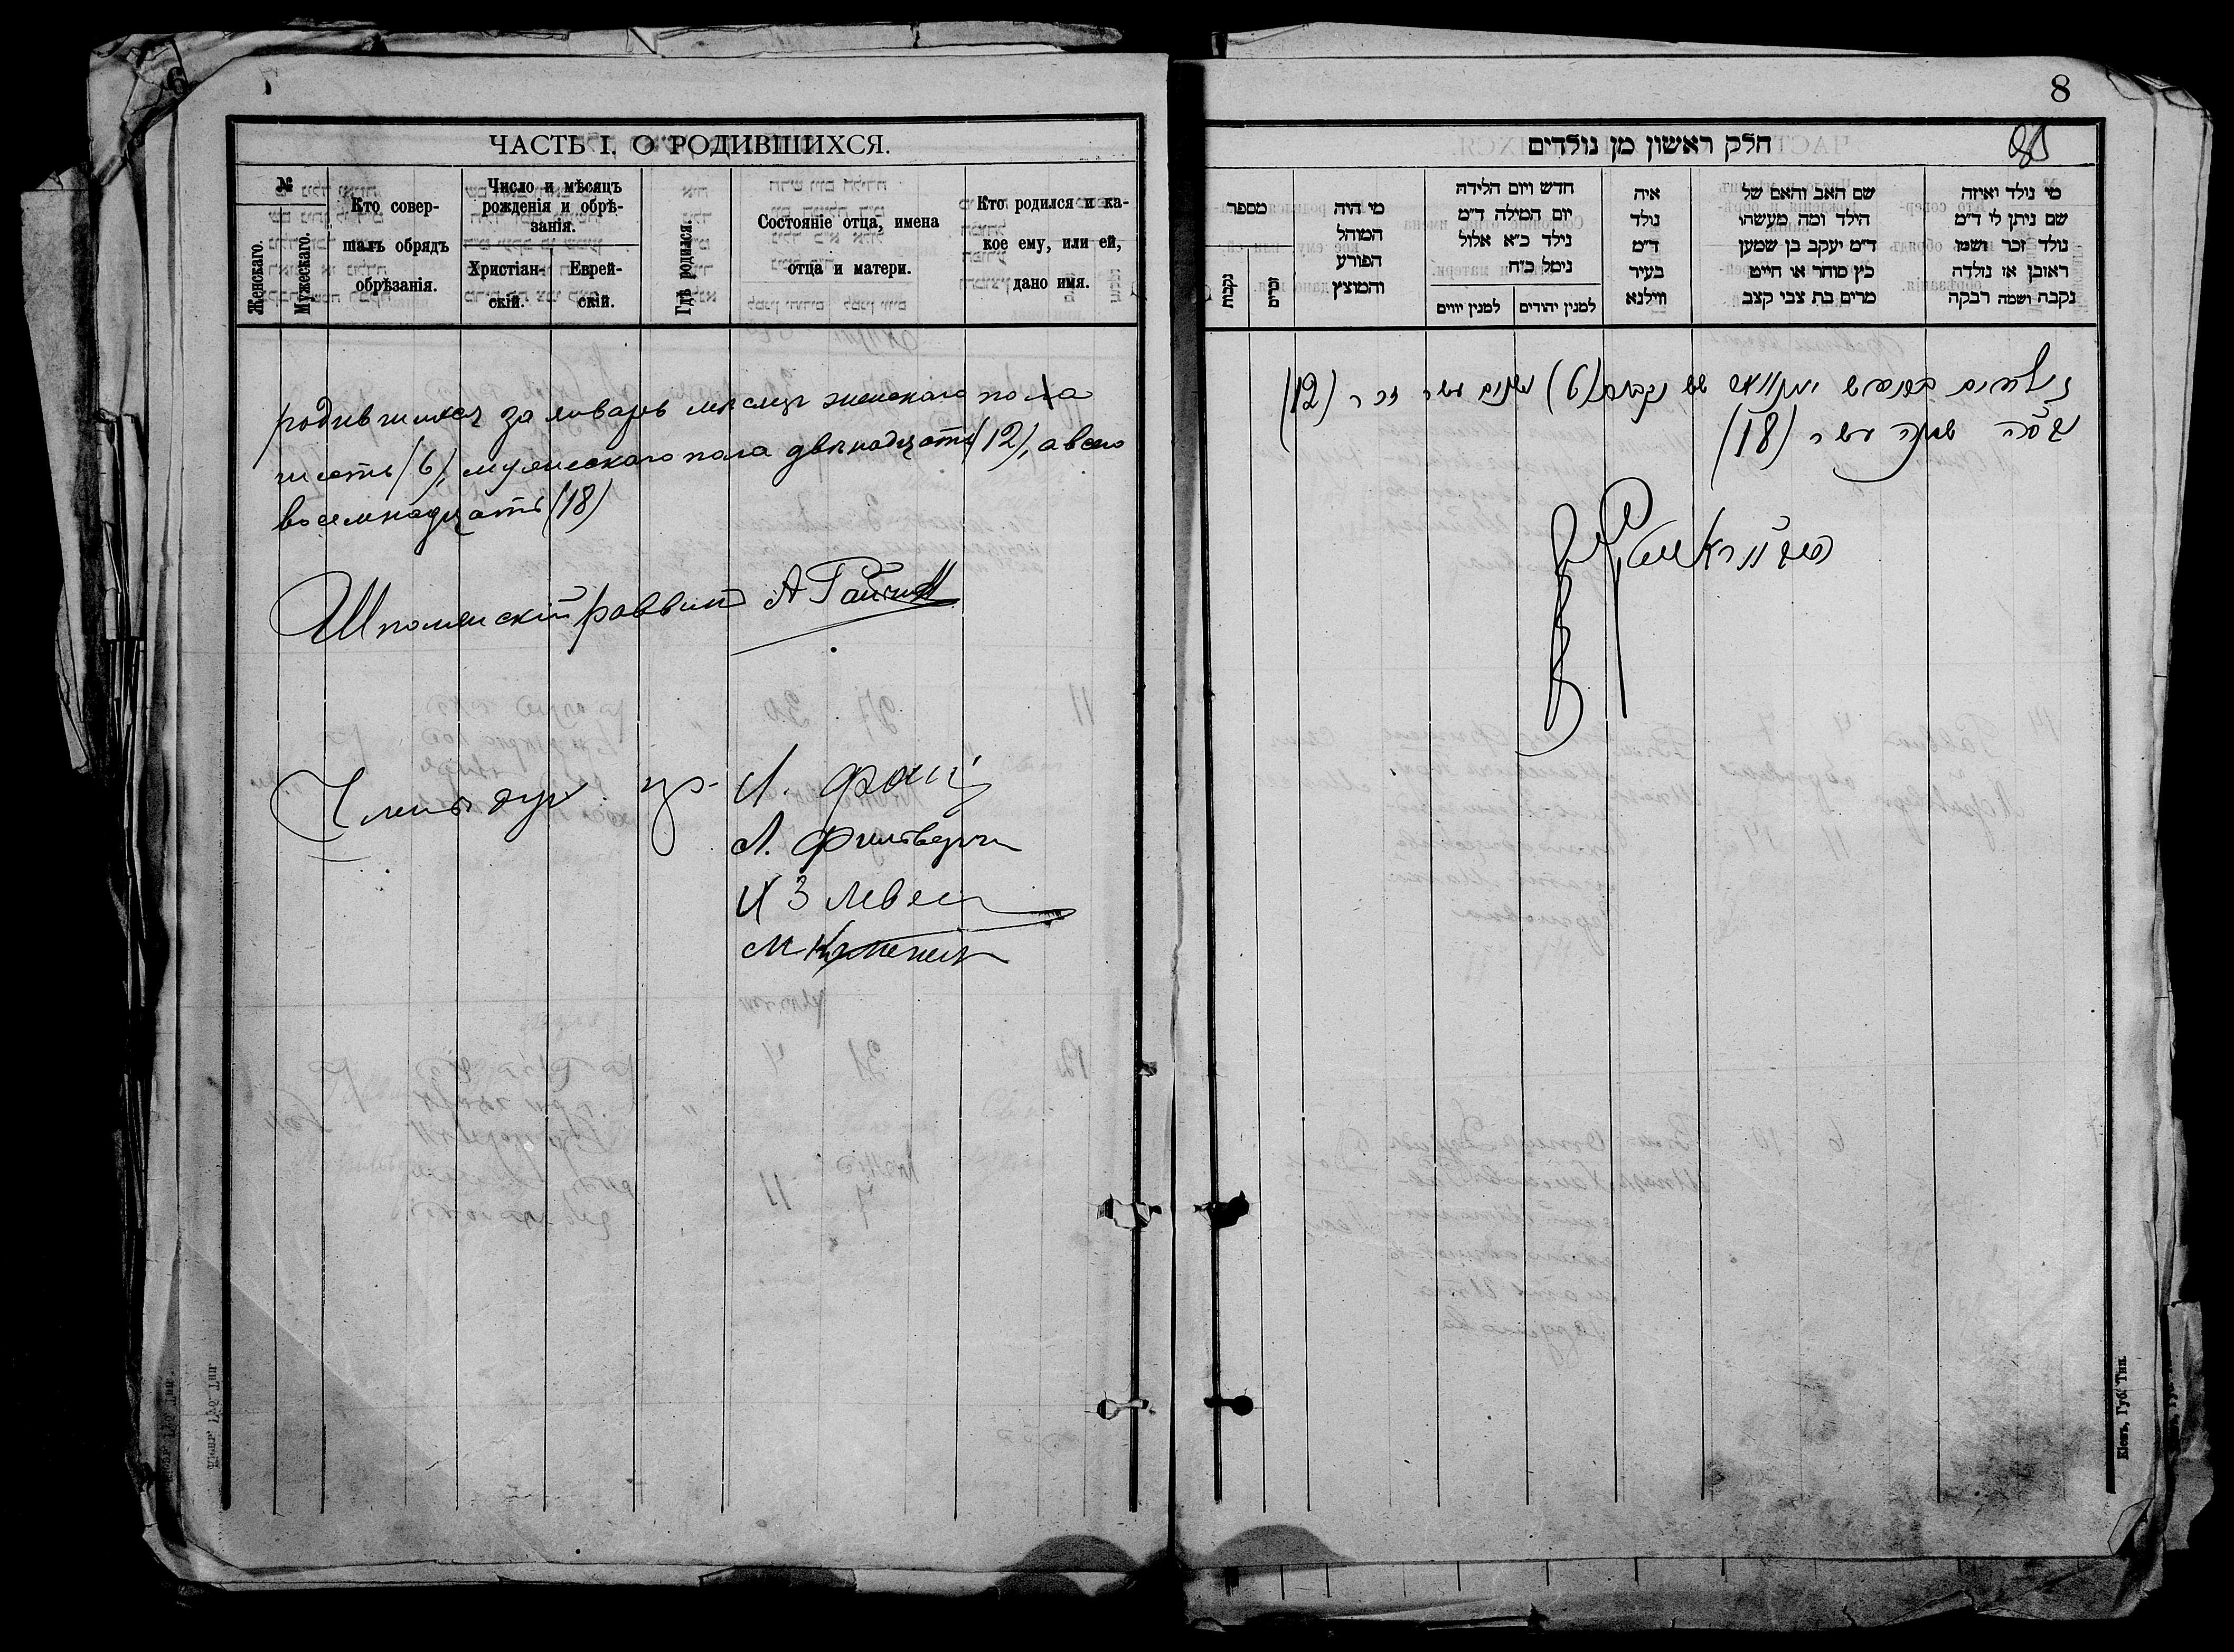 7
ЧАСТЬ I. О РОДИВШИХСЯ.
№
Женскаго.
Мужескаго.
Кто совер-
шалъ обрядъ
обрѣзанія.
Число и мѣсяцъ
рожденія и обрѣ-
занія.
Христіан-
скій.
Еврей-
скій.
Гдѣ родился.
Состояніе отца, имена
отца и матери.
Кто родился и ка-
кое ему, или ей,
дано имя.
родившихся за январь мѣсяцъ женскаго пола
шесть (6), мужескаго пола двѣнадцать (12), а всего
восемнадцать (18)
Шполянскій раввинъ А
Члены дух. пр-
И.
Л.
И З Левен
М
8
חלק ראשון מן נולדים
מי נולד ואיזה
שם ניתן לו ד״מ
נולד זכר ושמו
ראובן או נולדה
נקבה ושמה רבקה
שם האב והאם של
הילד ומה מעשהו
ד״מ יעקב בן שמעון
כץ סוחר או חייט
מרים בת צבי קצב
איה
נולד
ד״מ
בעיר
ווילנא
חדש ויום הלידה
יום המילה ד״מ
נולד כ״א אלול
נימל כ״ח
למנין יהודים
למנין יוונים
מי היה
המוהל
הפורע
והמוצץ
מספר
זכרים
נקבות
נולדים בחודש יאנוואר שש נקבות (6) ושנים עשר זכר (12)
שמנה עשר (18)
Кіевъ, Губ. Тип.